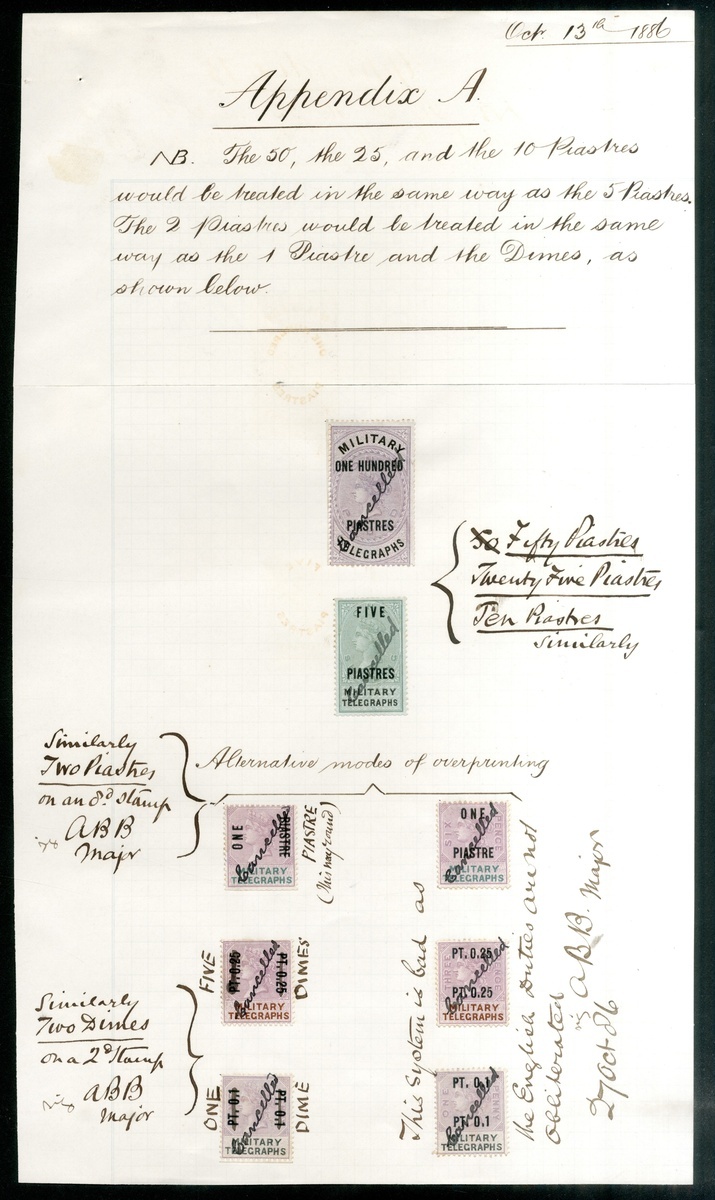 Oct. 13th 1886
Appendix A.
NB. The 50, the 25, and the 10 Piastres
would be treated in the same way as the 5 Piastres.
The 2 Piastres would be treated in the same
way as the 1 Piastre and the Dimes, as
shown below.
MILITARY
ONE HUNDRED
Cancelled
PIASTRES
TELEGRAPHS
50 Fifty Piastres
Twenty Five Piastres
Ten Piastres
Similarly
FIVE
Cancelled
PIASTRES
MILITARY
TELEGRAPHS
Similarly
Two Piastres
on an 8d stamp
ABB
Major
Alternative modes of overprinting
ONE
PIASTRE
Cancelled
MILITARY
TELEGRAPHS
PIASTRE
(this way round)
ONE
SIX PENCE
PIASTRE
Cancelled
MILITARY
TELEGRAPHS
FIVE
PT. 0.25
PT. 0.25
Cancelled
MILITARY
TELEGRAPHS
DIMES
PT. 0.25
THREE PENCE
PT. 0.25
Cancelled
MILITARY
TELEGRAPHS
Similarly
Two Dimes
on a 2d stamp
ABB
Major
ONE
PT. 0.1
PT. 0.1
Cancelled
MILITARY
TELEGRAPHS
DIME
PT. 0.1
ONE PENNY
PT. 0.1
Cancelled
MILITARY
TELEGRAPHS
This system is bad as
the English Duties are not
obliterated
ABB. Major
27 Oct 86